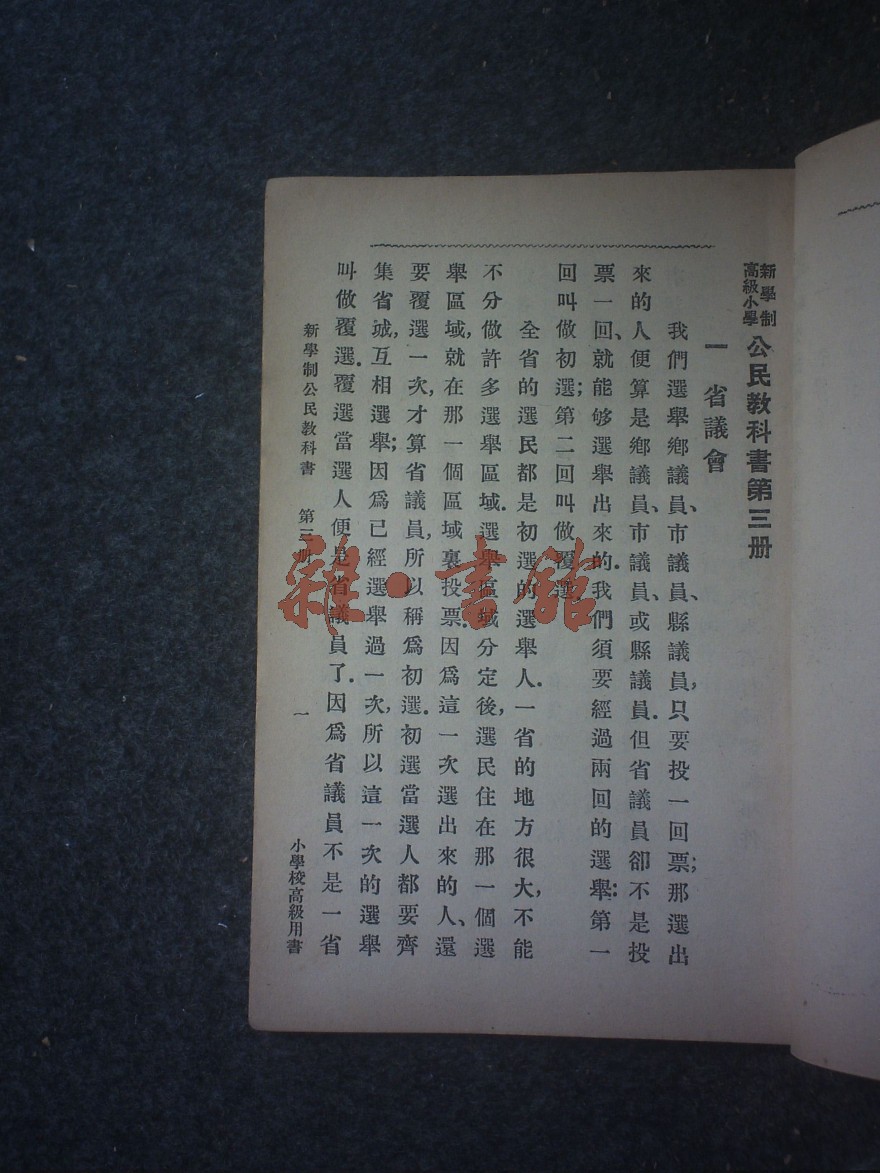 新學制
高級小學
公民教科書第三册
一 省議會
我們選舉鄉議員、市議員、縣議員，只要投一回票；那選出
來的人便算是鄉議員、市議員、或縣議員．但省議員卻不是投
票一回、就能够選舉出來的．我們須要經過兩回的選舉：第一
回叫做初選；第二回叫做覆選．
全省的選民都是初選的選舉人．一省的地方很大，不能
不分做許多選舉區域．選舉區域分定後，選民住在那一個選
舉區域，就在那一個區域裏投票．因爲這一次選出來的人、還
要覆選一次，才算省議員，所以稱爲初選．初選當選人都要齊
集省城，互相選舉；因爲已經選舉過一次，所以這一次的選舉
叫做覆選．覆選當選人便是省議員了．因爲省議員不是一省
新學制公民教科書 第三册 一 小學校高級用書
雜·書館